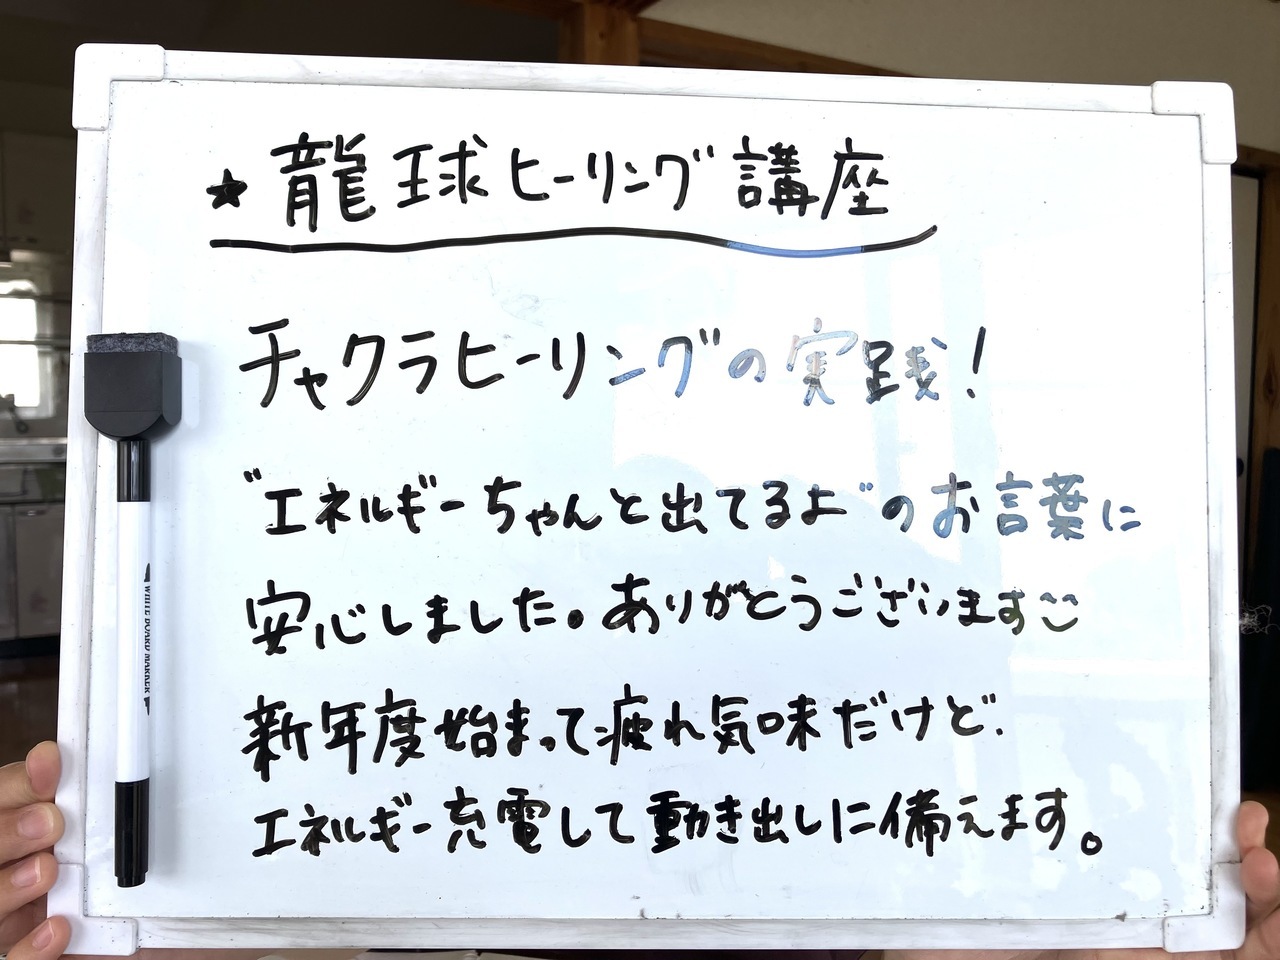 ★龍球ヒーリング講座
チャクラヒーリングの実践!
"エネルギーちゃんと出てるよ"のお言葉に
安心しました。ありがとうございます
新年度始まって疲れ気味だけど、
エネルギー充電して動き出しに備えます。
WHITE BOARD MARKER